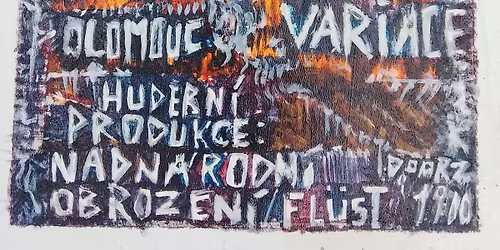 OLOMOUC VARIACE
HUDEBNÍ
PRODUKCE:
NADNÁRODNÍ
OBROZENÍ/FLÜST 1900